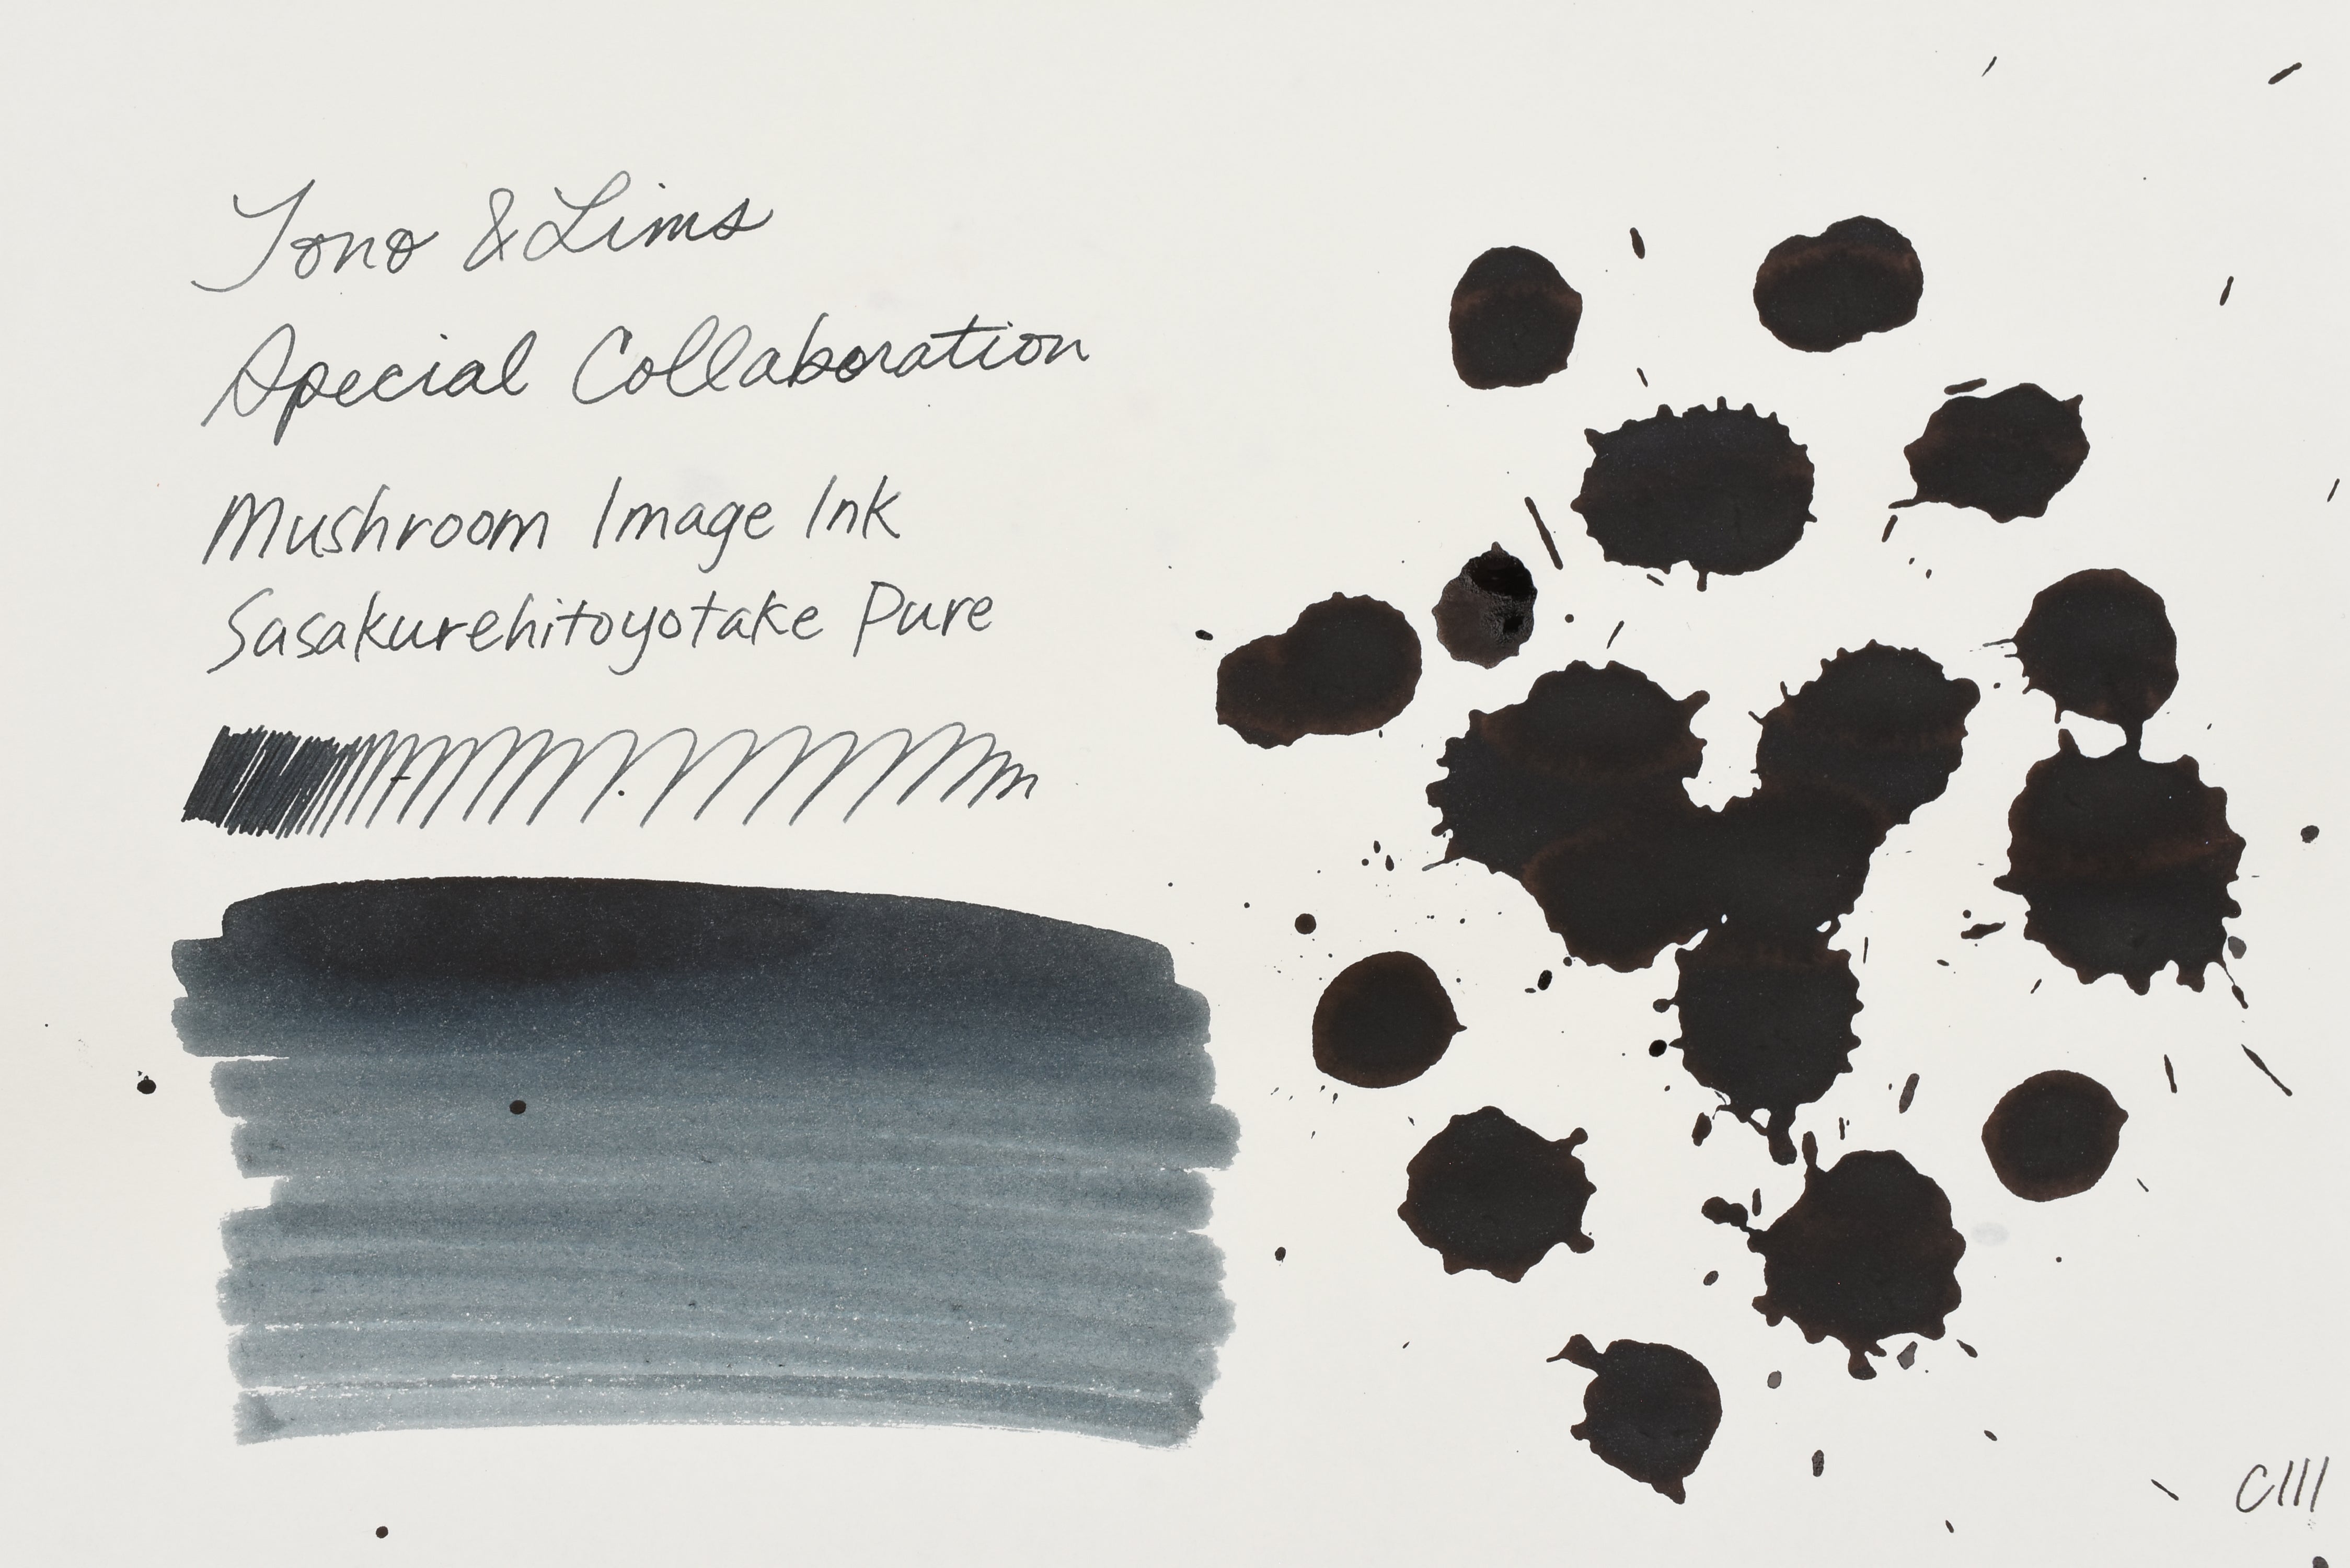 Tono & Lims
Special Collaboration
Mushroom Image Ink
Sasakurehitoyotake Pure
C111